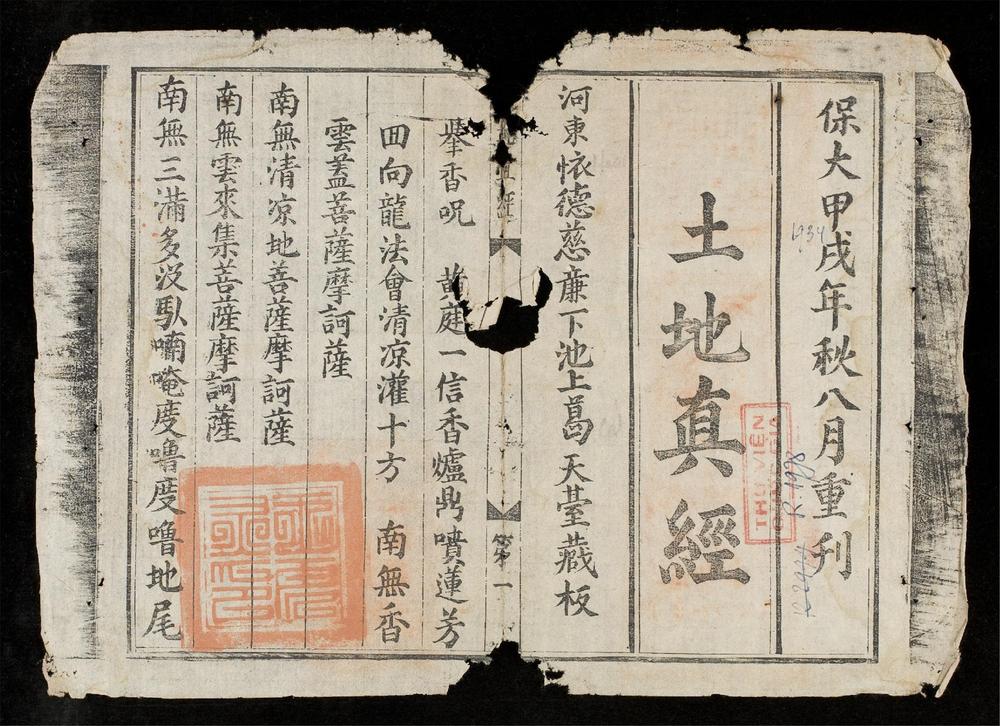 保大甲戌年秋八月重刊
1934
土地真經
THƯ VIỆN
R.1998
河東怀德慈廉下池上葛天臺藏板
真經
第一
舉香呪 黄庭一信香爐鼎噴蓮芳
田向龍法會清凉灌十方 南無香
雲蓋菩薩摩訶薩
南無清凉地菩薩摩訶薩
南無雲來集菩薩摩訶薩
南無三滿多没馱喃唵度嚕度嚕地尾